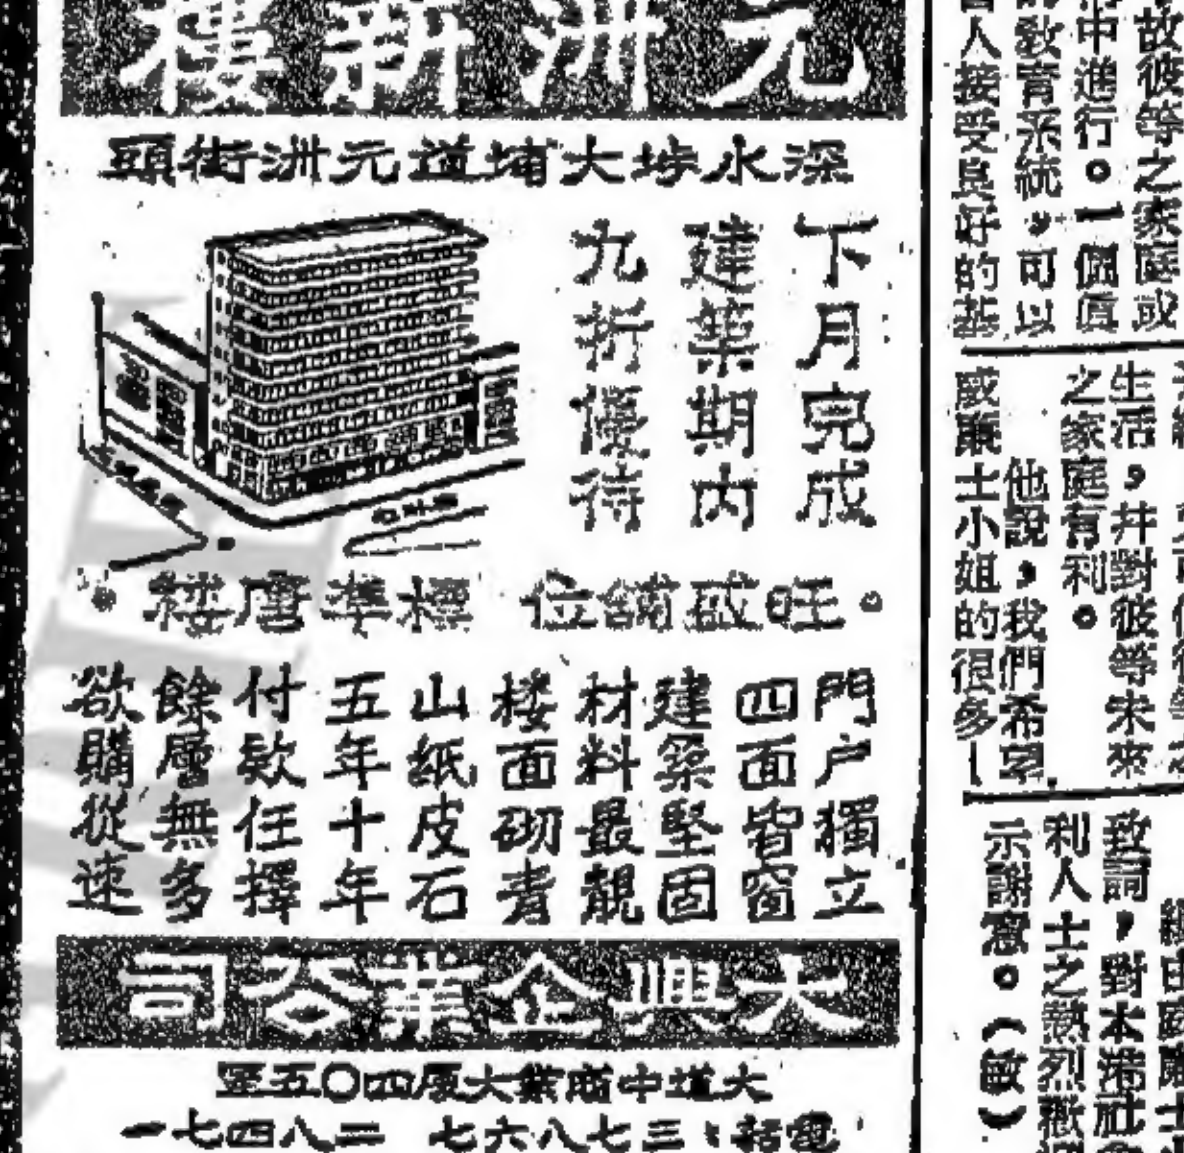 元洲新樓
深水埗大埔道元洲街頭
下月完成
建築期內
九折優待
旺盛舖位 標準唐樓
門户獨立
四面皆窗
建築堅固
材料最靚
楼面砌青
山紙皮石
五年十年
付款任擇
餘層無多
欲購從速
大興企業公司
大道中萬業大厦四〇五室
電話：三七八六七 二八四七一
故彼等之家庭或
中進行。一個
教育系統，可以
人接受良好的基
生活，并對彼等未來
之家庭有利。
他說，我們希望
或棄士小姐的很多
致詞，對本港社會
利人士之熱烈歡迎
示謝意。（敏）